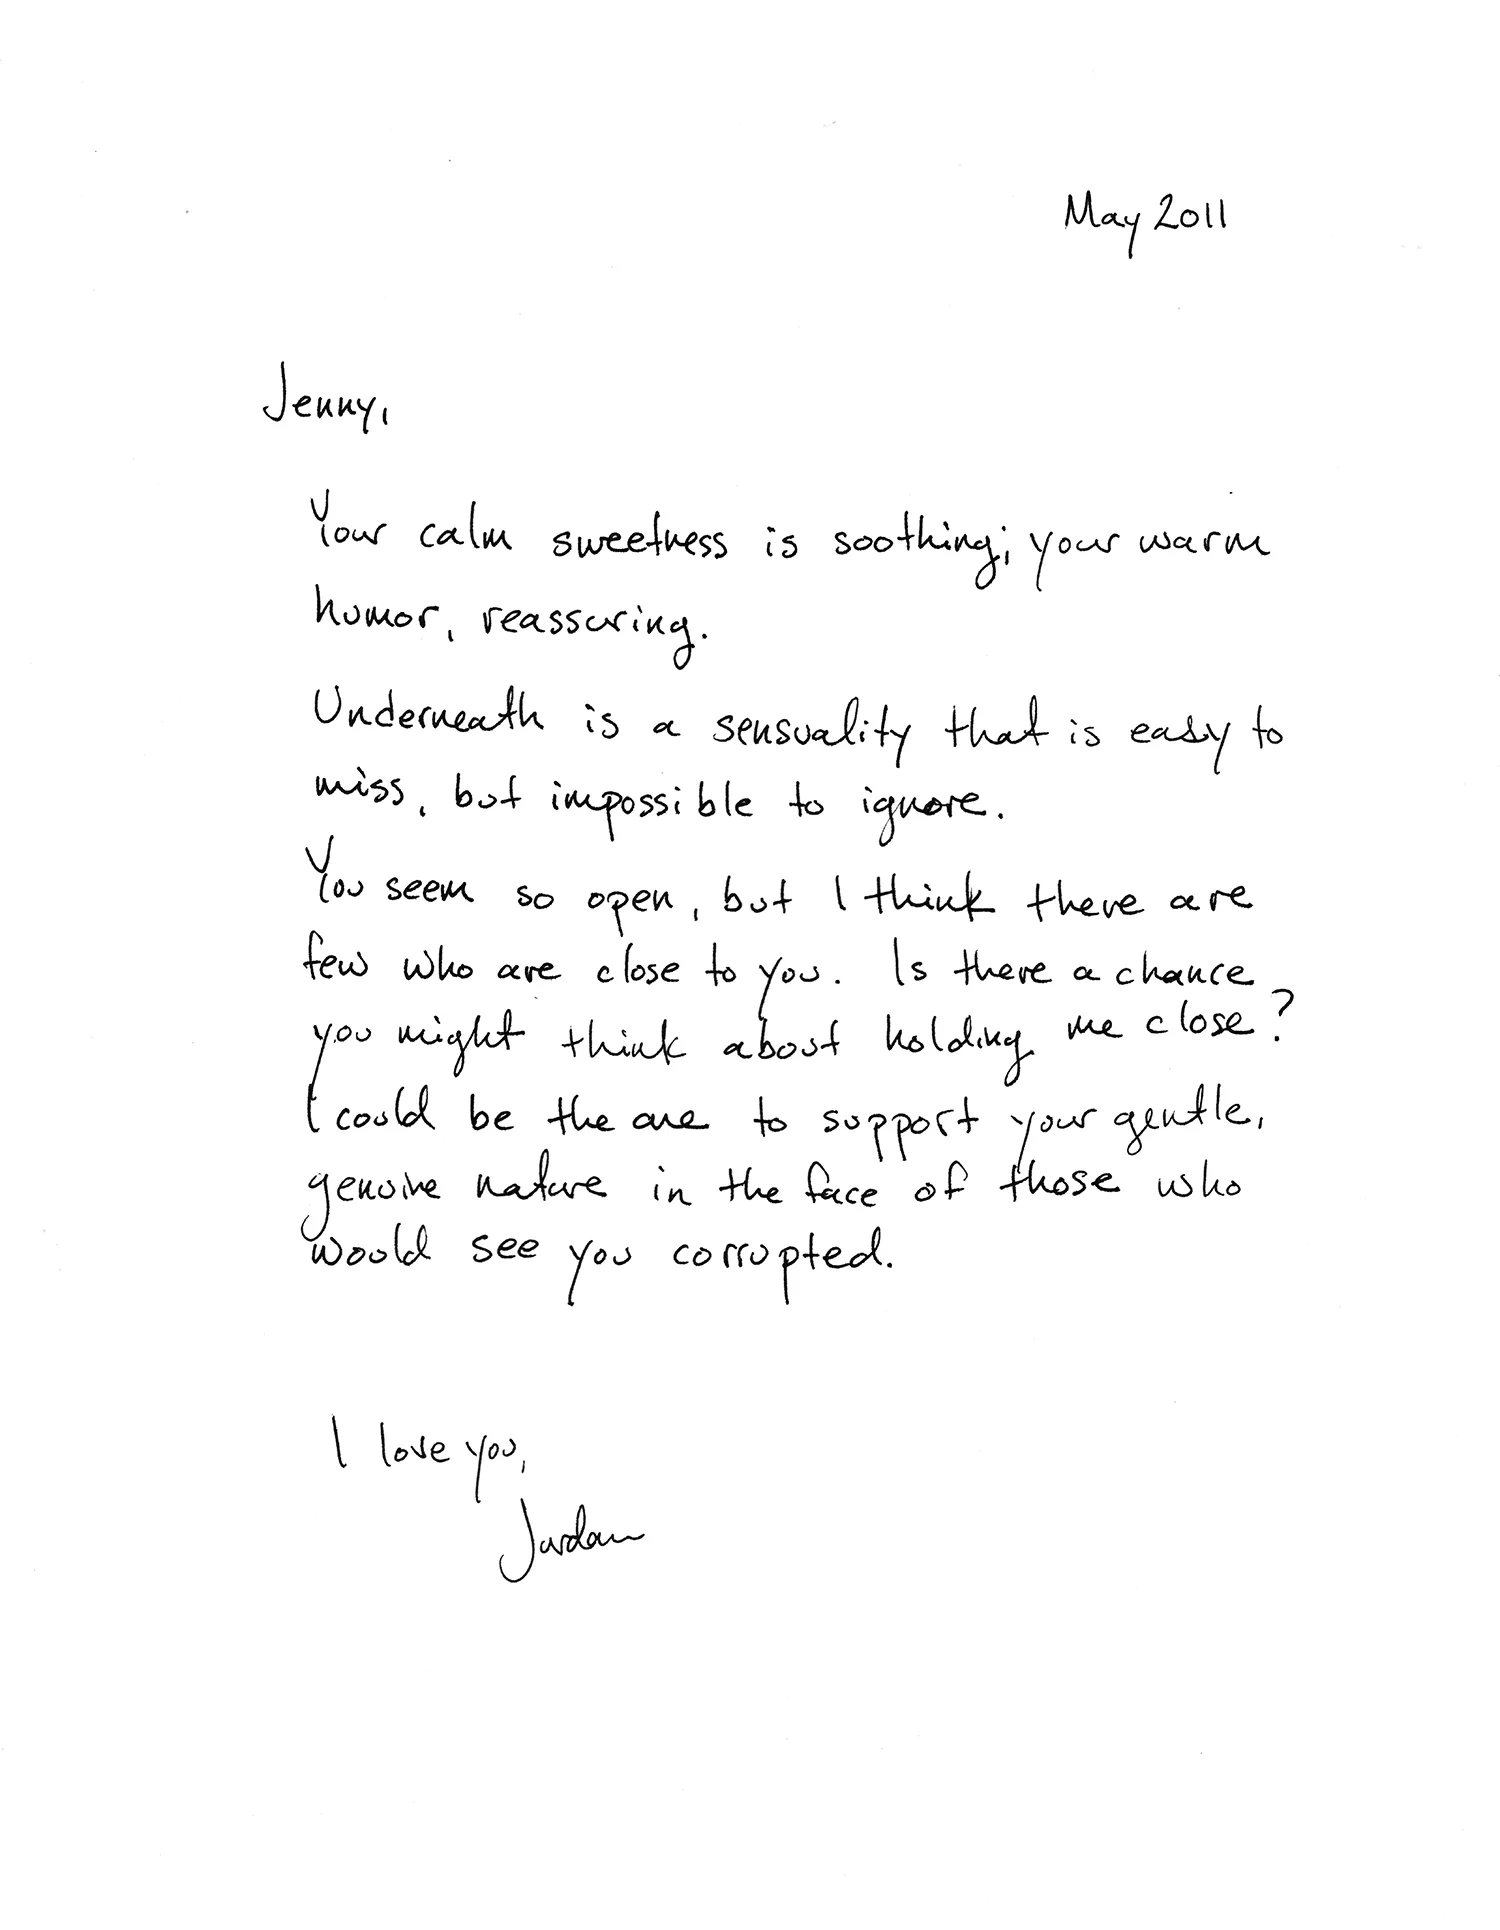 May 2011
Jenny,
Your calm sweetness is soothing; your warm
humor, reassuring.
Underneath is a sensuality that is easy to
miss, but impossible to ignore.
You seem so open, but I think there are
few who are close to you. Is there a chance
you might think about holding me close?
I could be the one to support your gentle,
genuine nature in the face of those who
would see you corrupted.
I love you,
Jordan